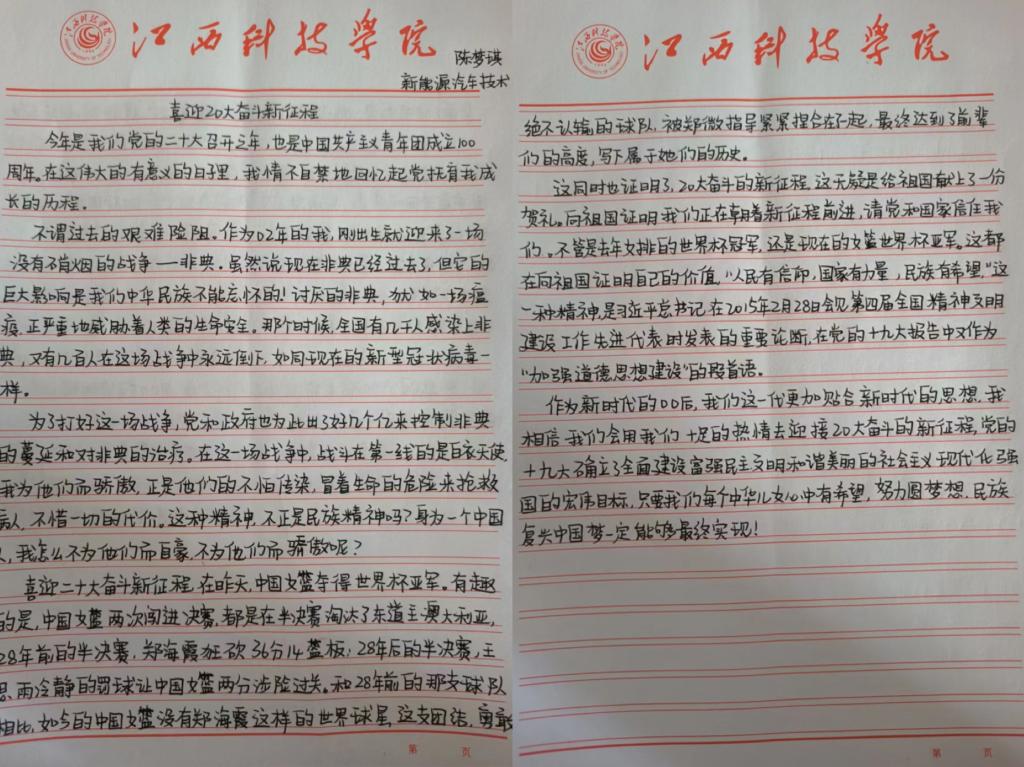 江西科技学院
陈梦琪
新能源汽车技术
喜迎20大奋斗新征程
今年是我们党的二十大召开之年,也是中国共产主义青年团成立100
周年。在这伟大的有意义的日子里,我情不自禁地回忆起党抚育我成
长的历程。
不谓过去的艰难险阻。作为02年的我,刚出生就迎来了一场
没有硝烟的战争——非典。虽然说现在非典已经过去了,但它的
巨大影响是我们中华民族不能忘怀的!讨厌的非典,犹如一场瘟
疫,正严重地威胁着人类的生命安全。那个时候,全国有几千人感染上非
典,又有几百人在这场战争中永远倒下,如同现在的新型冠状病毒一
样。
为了打好这一场战争,党和政府也为此出了好几个亿来控制非典
的蔓延和对非典的治疗。在这一场战争中,战斗在第一线的是白衣天使,
我为他们而骄傲,正是他们的不怕传染,冒着生命的危险来抢救
病人,不惜一切的代价。这种精神,不正是民族精神吗?身为一个中国
人,我怎么不为他们而自豪,不为他们而骄傲呢?
喜迎二十大奋斗新征程,在昨天,中国女篮夺得世界杯亚军。有趣
的是,中国女篮两次闯进决赛,都是在半决赛淘汰了东道主澳大利亚,
28年前的半决赛,郑海霞狂砍36分14篮板;28年后的半决赛,王
思雨冷静的罚球让中国女篮两分涉险过关。和28年前的那支球队
相比,如今的中国女篮没有郑海霞这样的世界球星,这支团结,勇敢
第 页
江西科技学院
绝不认输的球队,被郑微指导紧紧捏合在一起,最终达到了前辈
们的高度,写下属于她们的历史。
这同时也证明了,20大奋斗的新征程,这无疑是给祖国献上了一份
贺礼。向祖国证明我们正在朝着新征程前进,请党和国家信任我
们。不管是去年女排的世界杯冠军,还是现在的女篮世界杯亚军。这都
在向祖国证明自己的价值,“人民有信仰,国家有力量,民族有希望。”这
一种精神,是习近平总书记在2015年2月28日会见第四届全国精神文明
建设工作先进代表时发表的重要论断,在党的十九大报告中又作为
“加强道德思想建设”的段首语。
作为新时代的00后,我们这一代更加贴合新时代的思想,我
相信我们会用我们十足的热情去迎接20大奋斗的新征程,党的
十九大确立了全面建设富强民主文明和谐美丽的社会主义现代化强
国的宏伟目标,只要我们每个中华儿女心中有希望,努力圆梦想,民族
复兴中国梦一定能够最终实现!
第 页